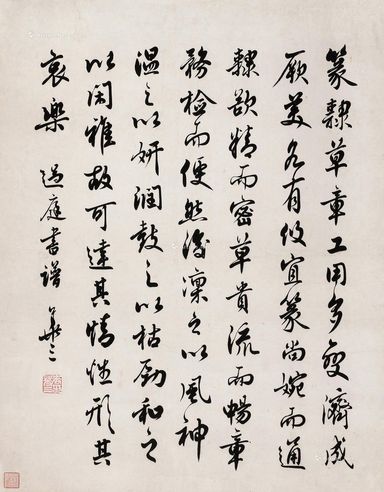 篆隸草章工用多變濟成
厥美各有攸宜篆尚婉而通
隸欲精而密草貴流而暢章
務檢而便然後凜之以風神
溫之以妍潤鼓之以枯勁和之
以閑雅故可達其情性形其
哀樂 過庭書譜